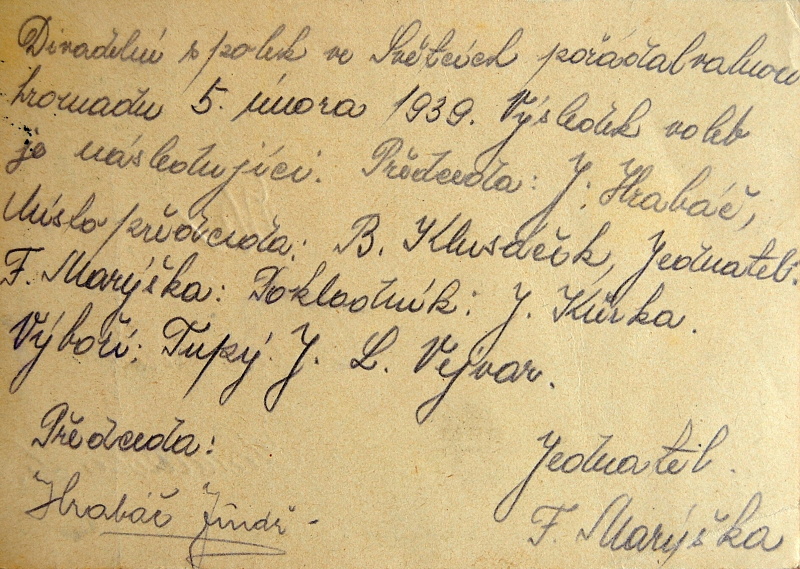 Divadelní spolek ve Světcích pořádal valnou
hromadu 5. února 1939. Výsledek voleb
je následující. Předseda: J. Hrabáč,
Místopředseda: B. Klusáček, Jednatel:
F. Marýška: Pokladník: J. Kůrka.
Výboři: Tupý J. L. Vejvar.
Předseda:
Jednatel.
Hrabáč Jindř -
F. Marýška